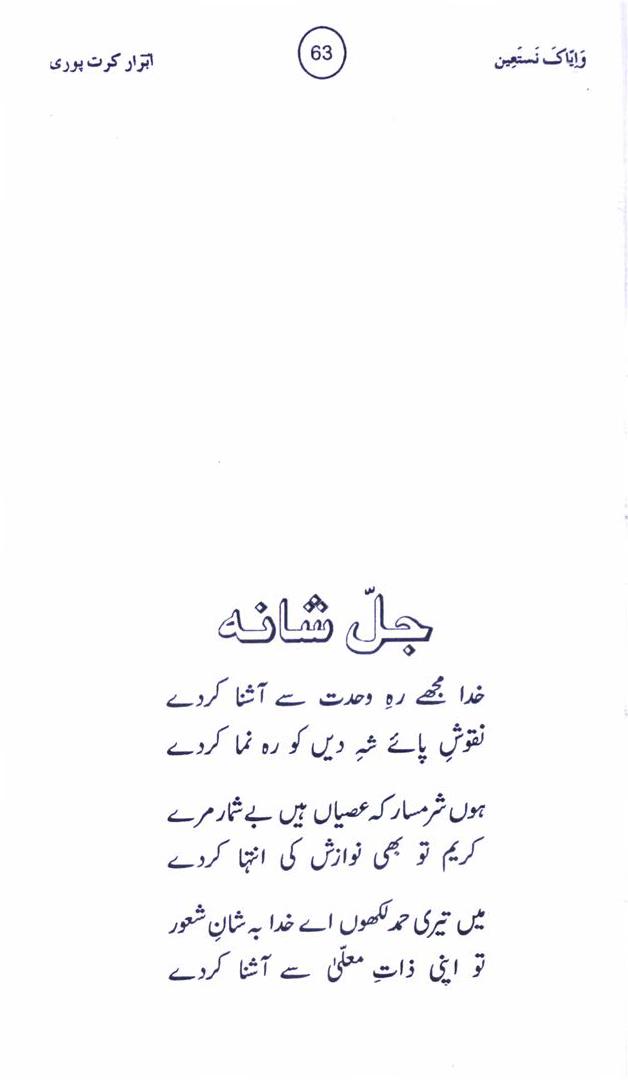 وَاِیّاکَ نَستَعِین 63 ابرؔار کرت پوری
جلّ شانہ
خدا مجھے رہِ وحدت سے آشنا کردے
نقوشِ پائے شہِ دیں کو رہ نما کردے
ہوں شرمسار کہ عصیاں ہیں بے شمار مرے
کریم تو بھی نوازش کی انتہا کردے
میں تیری حمد لکھوں اے خدا بہ شانِ شعور
تو اپنی ذاتِ معلّیٰ سے آشنا کردے